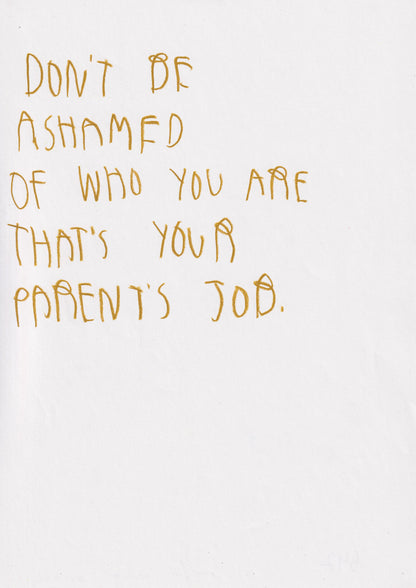 DON'T BE
ASHAMED
OF WHO YOU ARE
THAT'S YOUR
PARENT'S JOB.